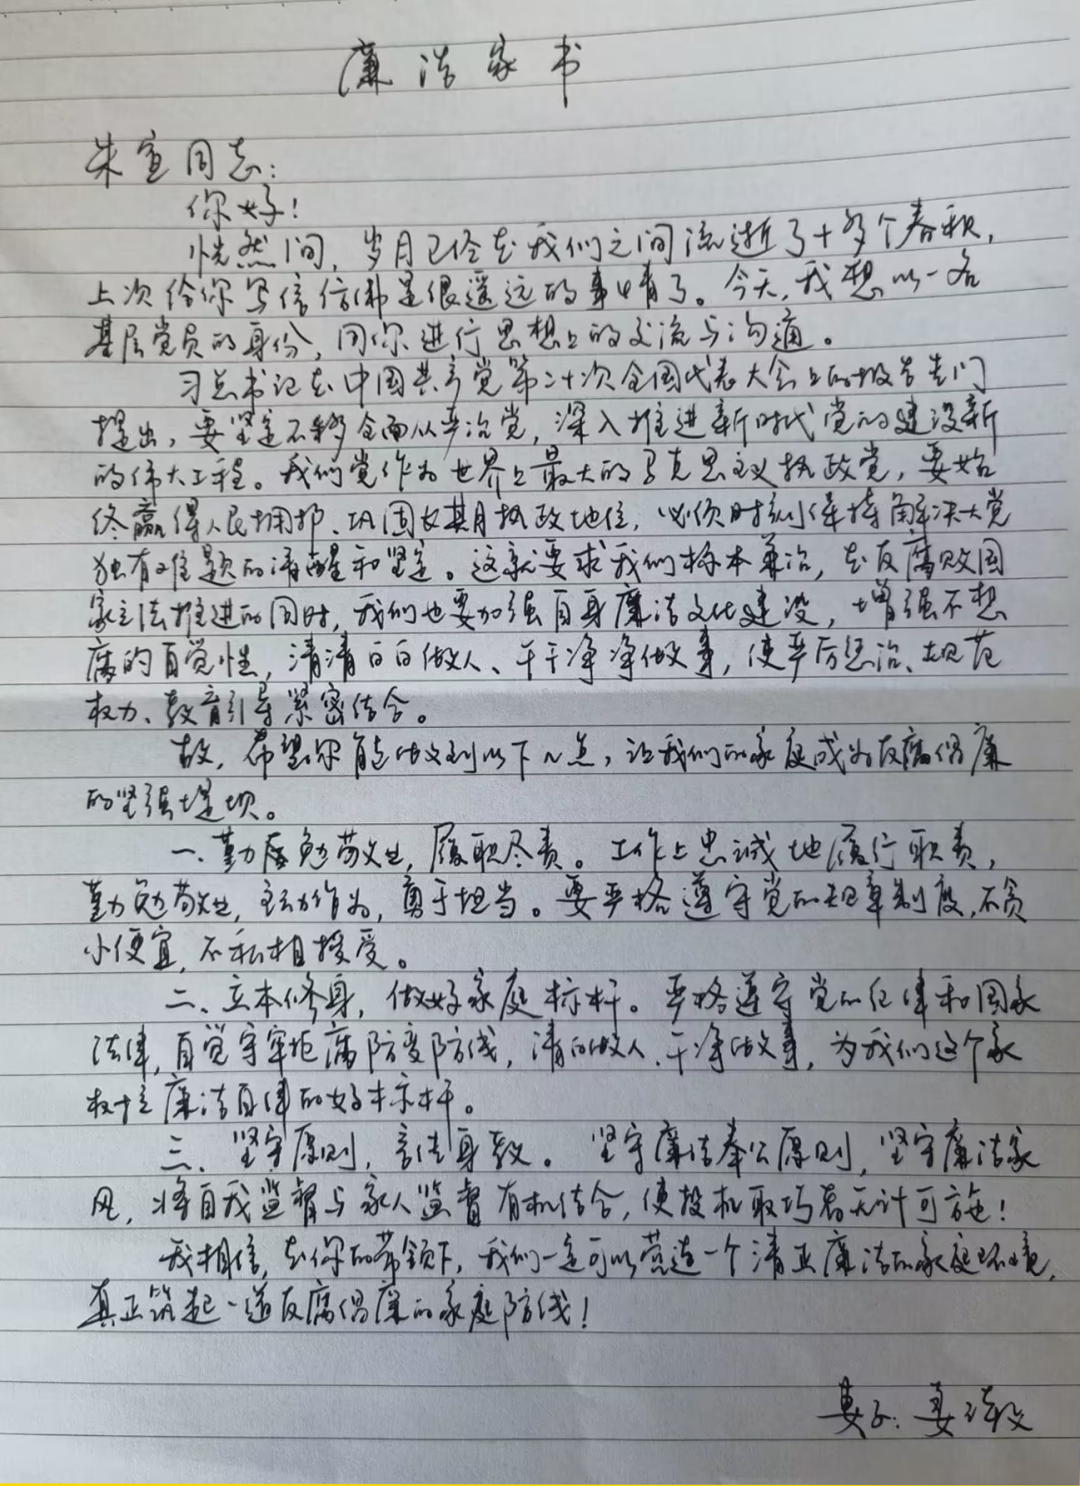 廉洁家书
朱宣同志：
你好！
恍然间，岁月已经在我们之间流逝了十多个春秋，
上次给你写信仿佛是很遥远的事情了。今天，我想以一名
基层党员的身份，同你进行思想上的交流与沟通。
习总书记在中国共产党第二十次全国代表大会上的报告专门
提出，要坚定不移全面从严治党，深入推进新时代党的建设新
的伟大工程。我们党作为世界上最大的马克思主义执政党，要始
终赢得人民拥护、巩固长期执政地位，必须时刻保持解决大党
独有难题的清醒和坚定。这就要求我们标本兼治，在反腐败国
家立法推进的同时，我们也要加强自身廉洁文化建设，增强不想
腐的自觉性，清清白白做人、干干净净做事，使严厉惩治、规范
权力、教育引导紧密结合。
故，希望你能做到以下几点，让我们的家庭成为反腐倡廉
的坚强堤坝。
一、勤勉敬业，履职尽责。工作上忠诚地履行职责，
勤勉敬业，主动作为，勇于担当。要严格遵守党的规章制度，不贪
小便宜，不私相授受。
二、立本修身，做好家庭标杆。严格遵守党的纪律和国家
法律，自觉守牢拒腐防变防线，清白做人、干净做事，为我们这个家
树立廉洁自律的好标杆。
三、坚守原则，言传身教。坚守廉洁奉公原则，坚守廉洁家
风，将自我监督与家人监督有机结合，使投机取巧者无计可施！
我相信，在你的带领下，我们一定可以营造一个清正廉洁的家庭环境，
真正筑起一道反腐倡廉的家庭防线！
妻子：姜